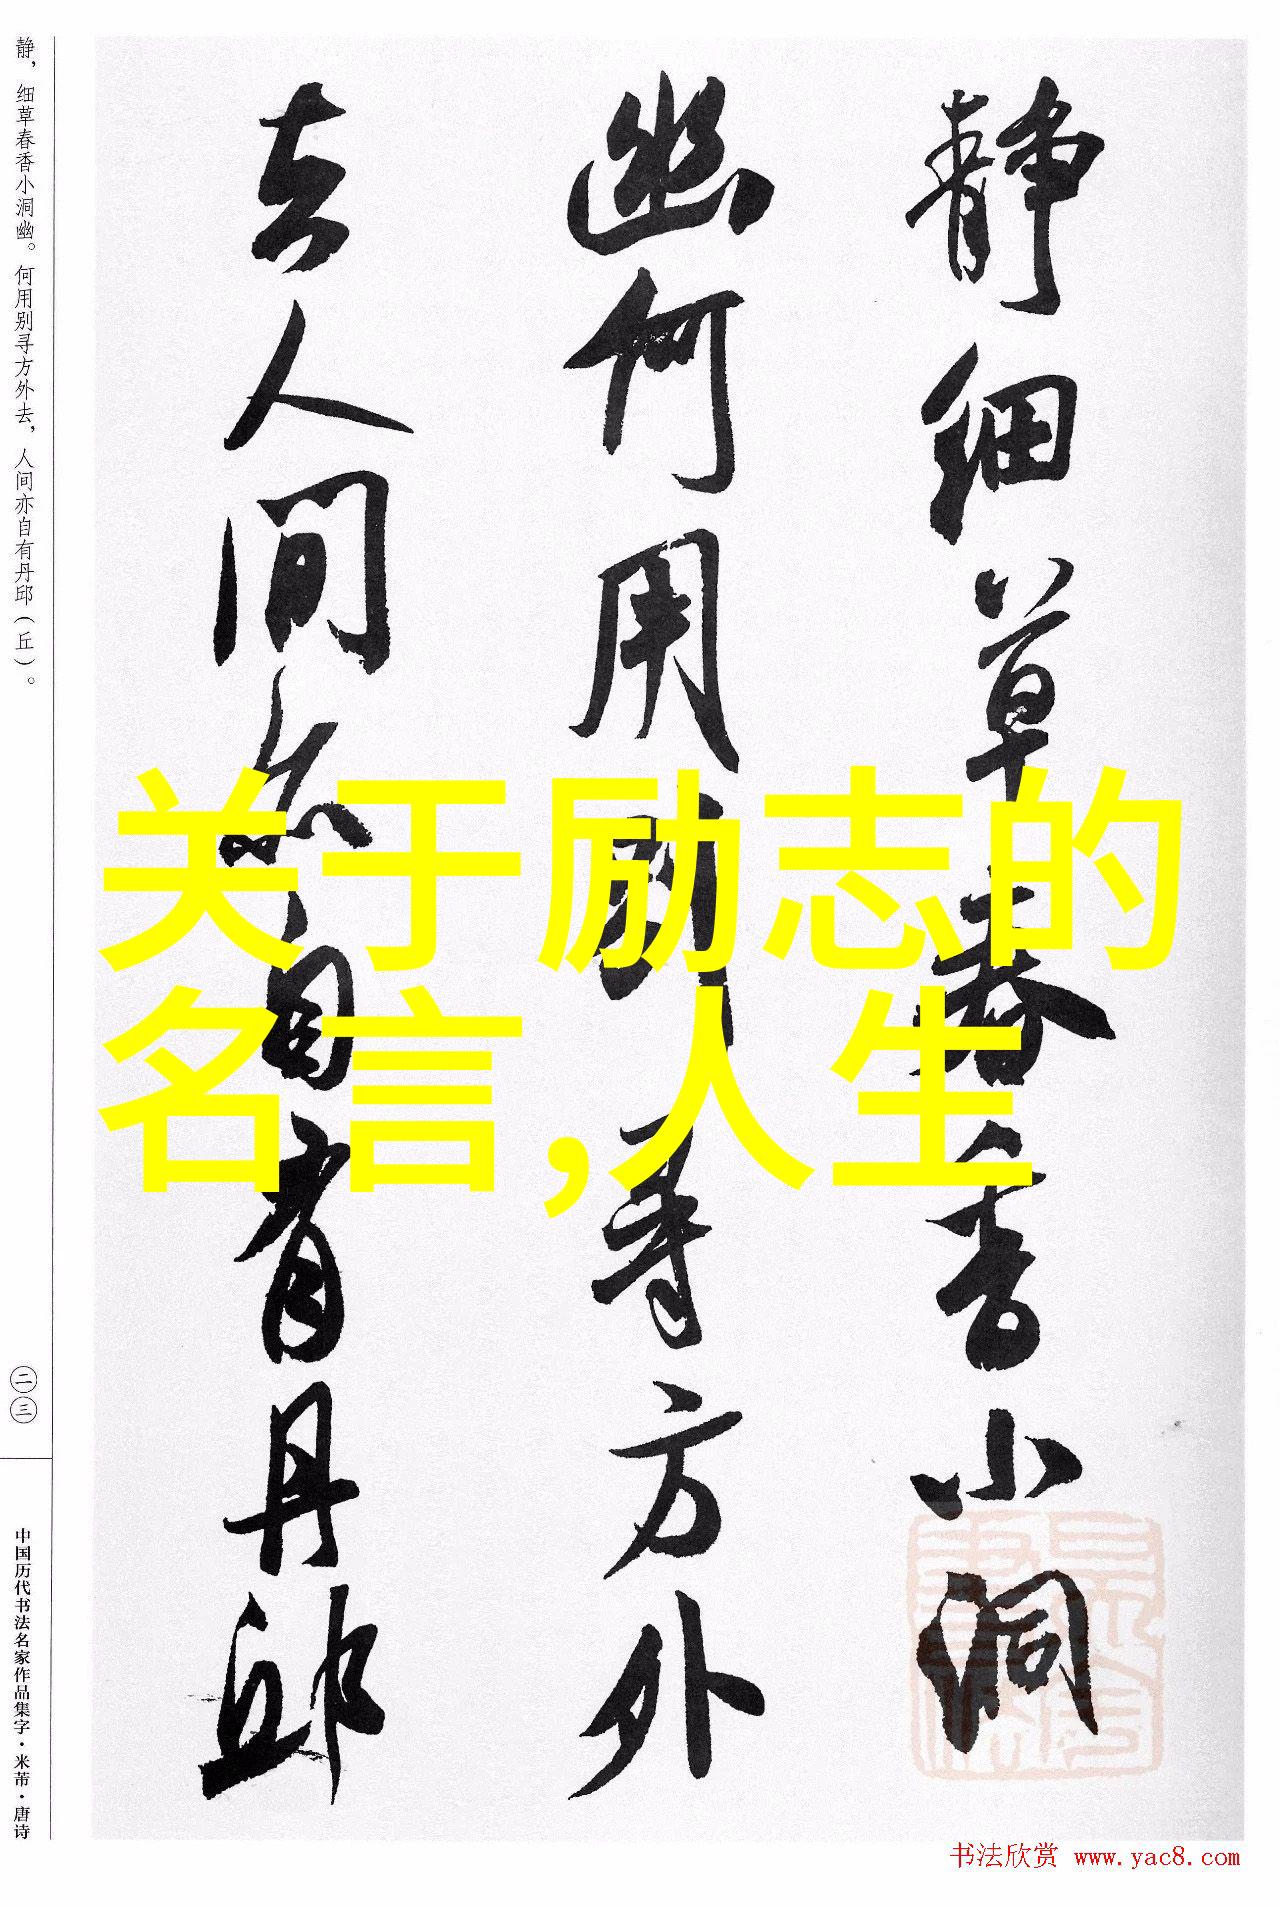 静细草春香小洞
幽何用别寻方外
去人间亦自有丹邱
关于励志的
名言,人生
静，细草春香小洞幽。何用别寻方外去，人间亦自有丹邱（丘）。
二三
中国历代书法名家作品集字·米芾·唐诗
书法欣赏 www.yac8.com